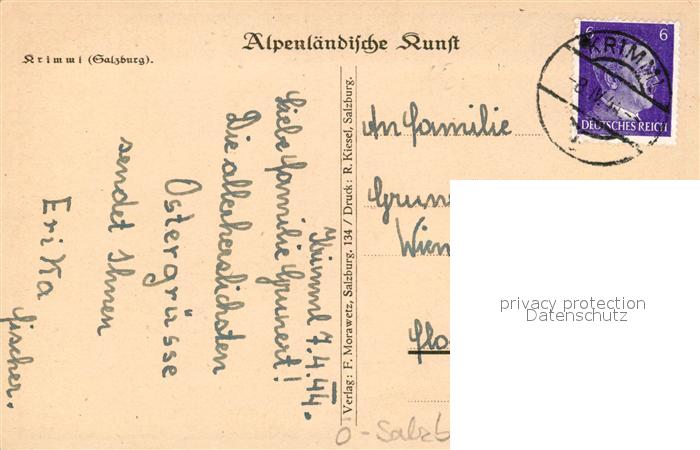 Alpenländische Kunst
Krimml (Salzburg).
Krimml 7.4.44.
Liebe Familie Grunert!
Die allerherzlichsten
Ostergrüsse
sendet Ihnen
Erika
Fischer.
Verlag: F. Morawetz, Salzburg. 134 / Druck: R. Kiesel, Salzburg.
6 6
DEUTSCHES REICH
KRIMML
An Familie
Grun
Wien
privacy protection
Datenschutz
O-Salzb